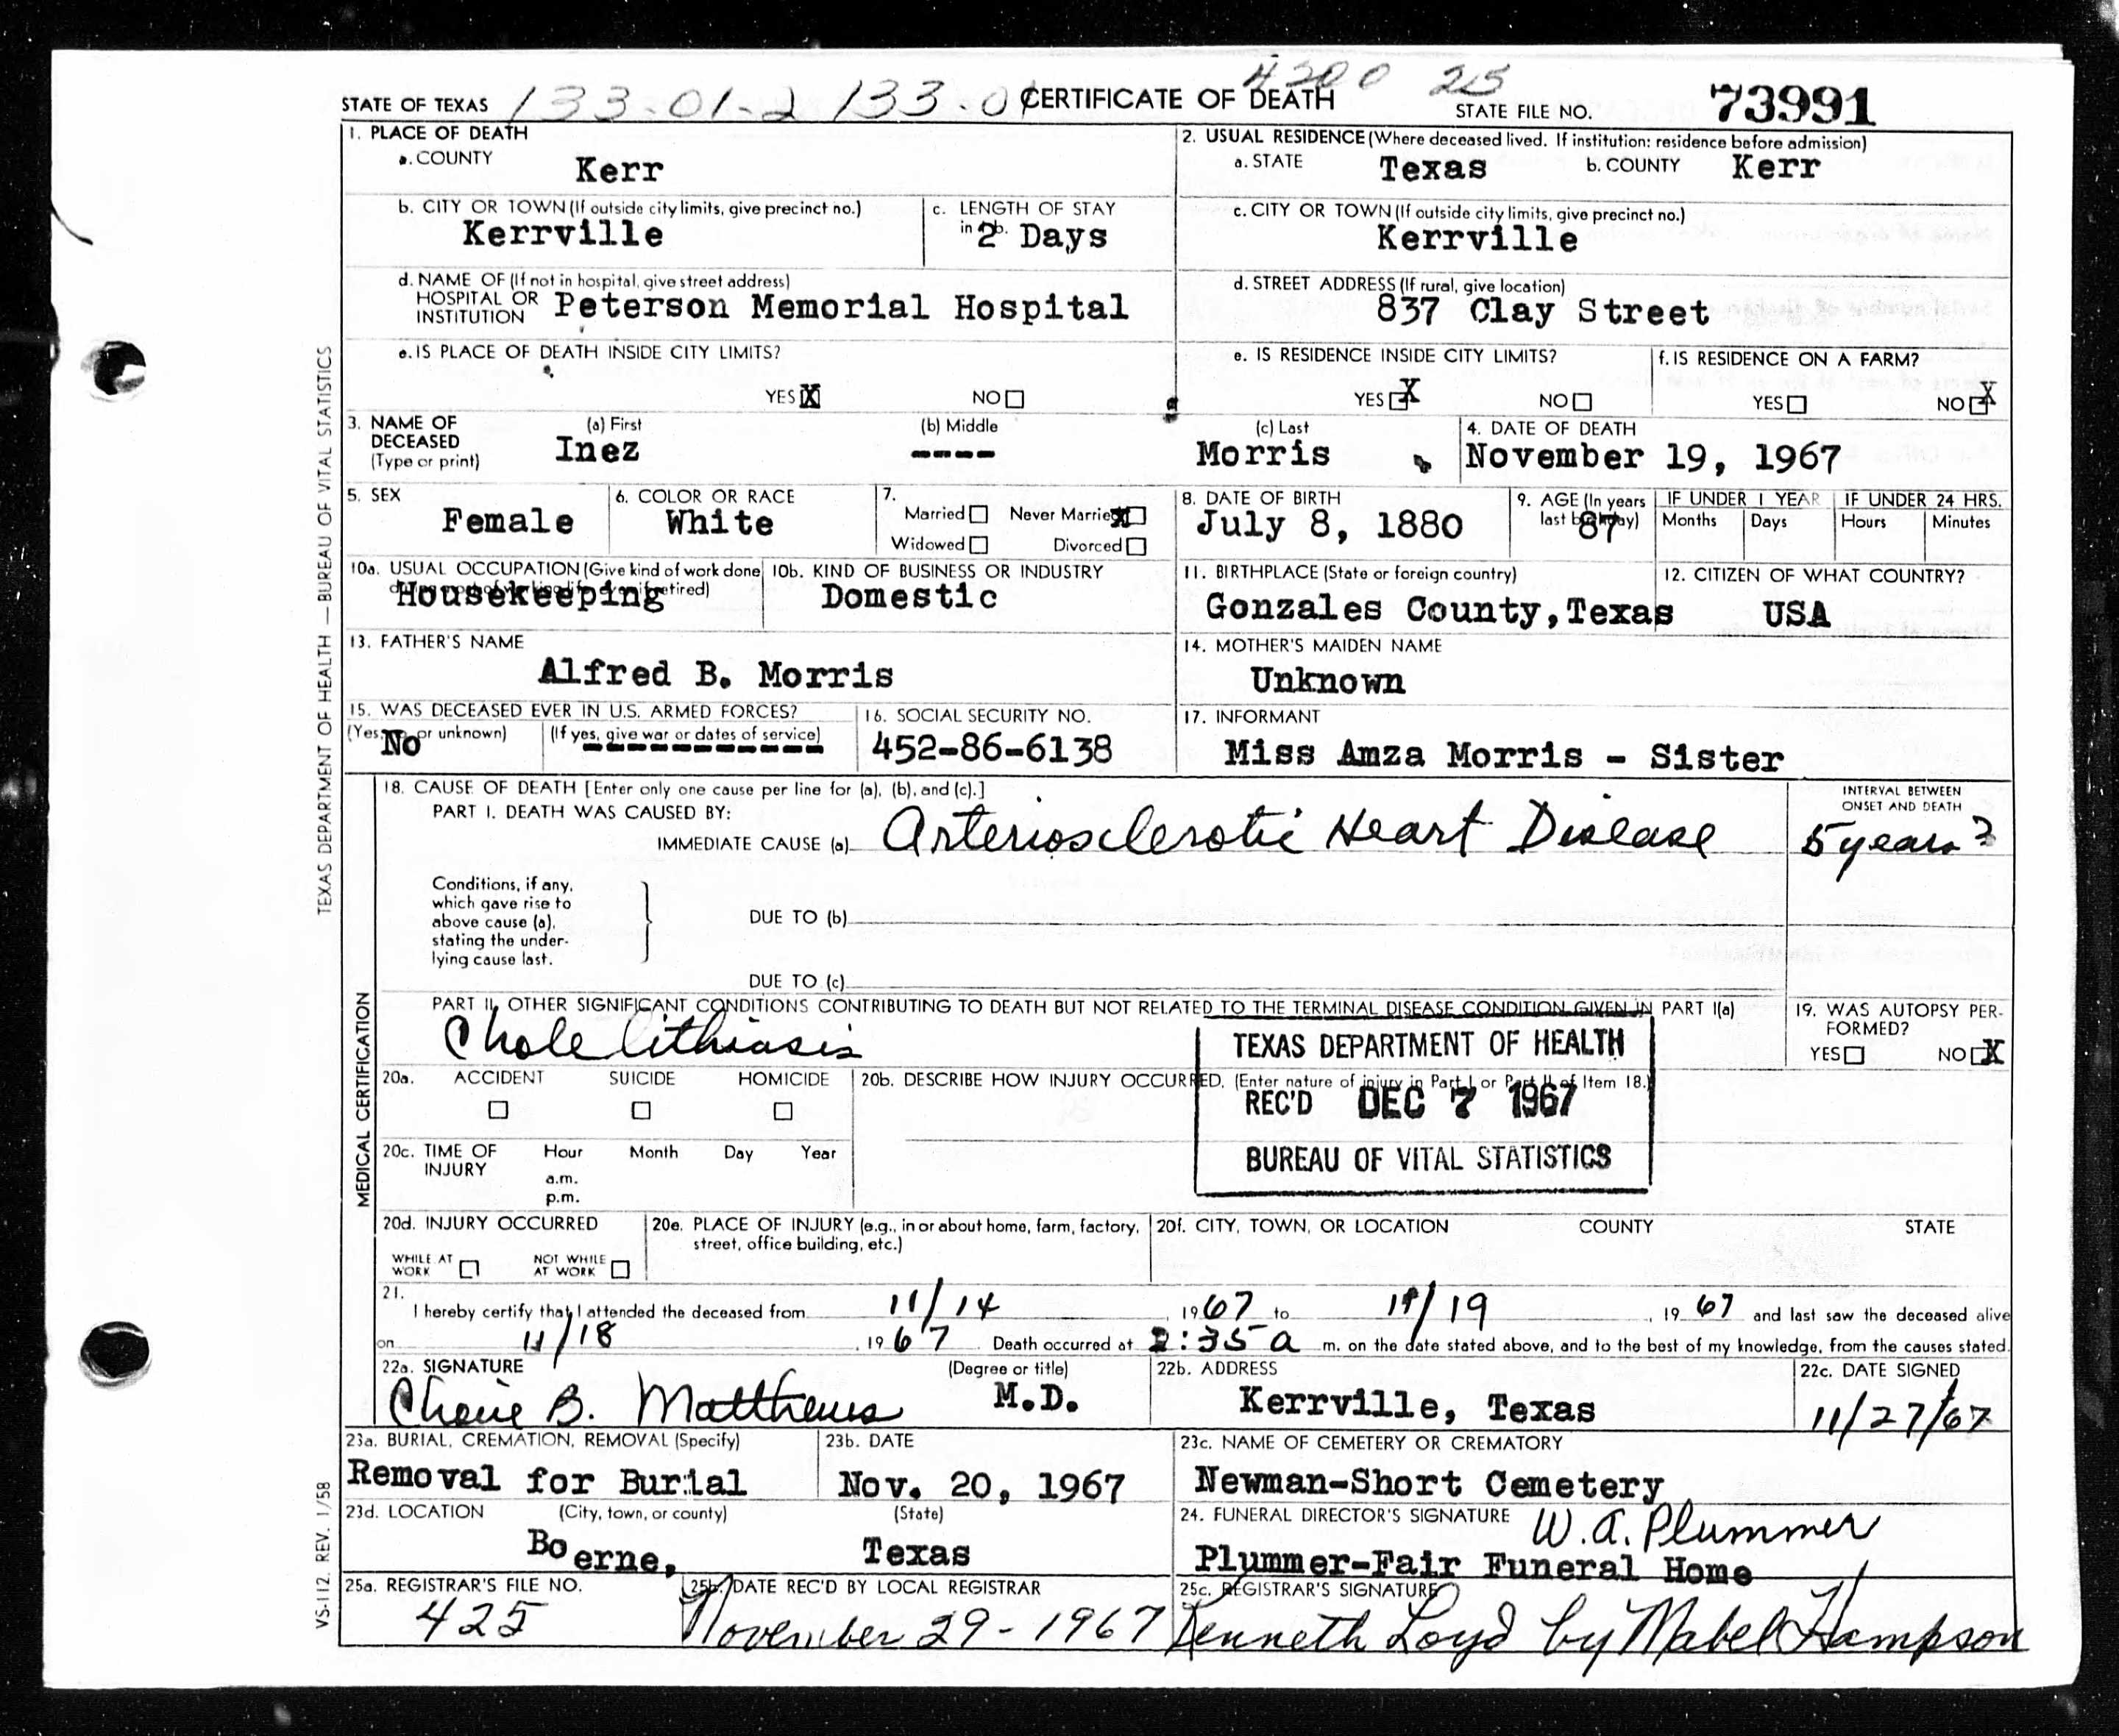 133-01-2 133-0 4200 25
STATE OF TEXAS CERTIFICATE OF DEATH STATE FILE NO. 73991
1. PLACE OF DEATH
a. COUNTY Kerr
2. USUAL RESIDENCE (Where deceased lived. If institution: residence before admission)
a. STATE Texas b. COUNTY Kerr
b. CITY OR TOWN (If outside city limits, give precinct no.) Kerrville
c. LENGTH OF STAY in 1b. 2 Days
c. CITY OR TOWN (If outside city limits, give precinct no.) Kerrville
d. NAME OF (If not in hospital, give street address)
HOSPITAL OR INSTITUTION Peterson Memorial Hospital
d. STREET ADDRESS (If rural, give location)
837 Clay Street
e. IS PLACE OF DEATH INSIDE CITY LIMITS?
YES X NO
e. IS RESIDENCE INSIDE CITY LIMITS?
YES X NO
f. IS RESIDENCE ON A FARM?
YES NO X
3. NAME OF DECEASED (Type or print)
(a) First Inez
(b) Middle ----
(c) Last Morris
4. DATE OF DEATH
November 19, 1967
5. SEX Female
6. COLOR OR RACE White
7. Married Never Married X
Widowed Divorced
8. DATE OF BIRTH July 8, 1880
9. AGE (In years last birthday) 87
IF UNDER 1 YEAR Months Days
IF UNDER 24 HRS. Hours Minutes
10a. USUAL OCCUPATION (Give kind of work done during most of working life, even if retired) Housekeeping
10b. KIND OF BUSINESS OR INDUSTRY Domestic
11. BIRTHPLACE (State or foreign country) Gonzales County, Texas
12. CITIZEN OF WHAT COUNTRY? USA
13. FATHER'S NAME
Alfred B. Morris
14. MOTHER'S MAIDEN NAME
Unknown
15. WAS DECEASED EVER IN U.S. ARMED FORCES?
(Yes, no, or unknown) No (If yes, give war or dates of service) ------------
16. SOCIAL SECURITY NO.
452-86-6138
17. INFORMANT
Miss Amza Morris - Sister
18. CAUSE OF DEATH [Enter only one cause per line for (a), (b), and (c).]
PART I. DEATH WAS CAUSED BY:
IMMEDIATE CAUSE (a) Arteriosclerotic Heart Disease
INTERVAL BETWEEN ONSET AND DEATH
5 years?
Conditions, if any, which gave rise to above cause (a), stating the underlying cause last.
DUE TO (b)
DUE TO (c)
PART II. OTHER SIGNIFICANT CONDITIONS CONTRIBUTING TO DEATH BUT NOT RELATED TO THE TERMINAL DISEASE CONDITION GIVEN IN PART I(a)
Cholelithiasis
19. WAS AUTOPSY PERFORMED?
YES NO X
TEXAS DEPARTMENT OF HEALTH
REC'D DEC 7 1967
BUREAU OF VITAL STATISTICS
20a. ACCIDENT SUICIDE HOMICIDE
20b. DESCRIBE HOW INJURY OCCURRED. (Enter nature of injury in Part I or Part II of Item 18.)
20c. TIME OF INJURY Hour Month Day Year
a.m.
p.m.
20d. INJURY OCCURRED
WHILE AT WORK NOT WHILE AT WORK
20e. PLACE OF INJURY (e.g., in or about home, farm, factory, street, office building, etc.)
20f. CITY, TOWN, OR LOCATION COUNTY STATE
21. I hereby certify that I attended the deceased from 11/14, 1967 to 11/19, 1967 and last saw the deceased alive
on 11/18, 1967 Death occurred at 2:35 a m. on the date stated above, and to the best of my knowledge, from the causes stated.
22a. SIGNATURE (Degree or title)
B. Matthews M.D.
22b. ADDRESS
Kerrville, Texas
22c. DATE SIGNED
11/27/67
23a. BURIAL, CREMATION, REMOVAL (Specify)
Removal for Burial
23b. DATE
Nov. 20, 1967
23c. NAME OF CEMETERY OR CREMATORY
Newman-Short Cemetery
23d. LOCATION (City, town, or county) (State)
Boerne, Texas
24. FUNERAL DIRECTOR'S SIGNATURE W. A. Plummer
Plummer-Fair Funeral Home
25a. REGISTRAR'S FILE NO.
425
25b. DATE REC'D BY LOCAL REGISTRAR
November 29-1967
25c. REGISTRAR'S SIGNATURE
Kenneth Loyd by Mabel Hampson
TEXAS DEPARTMENT OF HEALTH — BUREAU OF VITAL STATISTICS
MEDICAL CERTIFICATION
VS-112. REV. 1/58